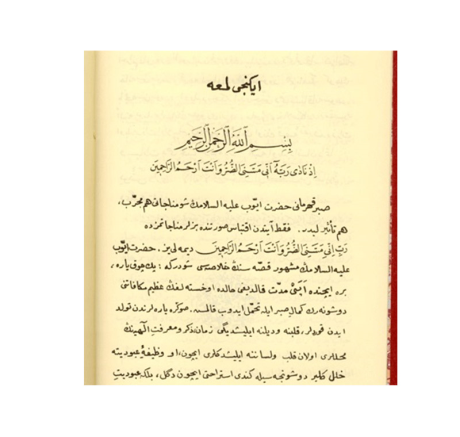 ایکنجی لمعه
بِسْمِ اللّٰهِ الرَّحْمٰنِ الرَّحِيمِ
اِذْ نَادٰى رَبَّهُٓ اَنّ۪ى مَسَّنِىَ الضُّرُّ وَاَنْتَ اَرْحَمُ الرَّاحِم۪ينَ
صبر قهرمانی حضرت ایّوب علیه السلامك شو مناجاتی هم مجرّب،
هم تأثیرلیدر. فقط آیتدن اقتباس صورتنده بزلر مناجاتمزده
رَبِّ اِنّ۪ى مَسَّنِىَ الضُّرُّ وَاَنْتَ اَرْحَمُ الرَّاحِم۪ينَ دیمه لی یز. حضرت ایّوب
علیه السلامك مشهور قصّه سنك خلاصه سی شودركه: پك چوق یاره،
بره ایچنده اپی مدّت قالدیغی حالده او خسته لغك عظیم مكافاتنی
دوشونه رك كمال صبر ایله تحمّل ایدوب قالمش. صوكره یاره لرندن تولّد
ایدن قوردلر، قلبنه و دیلنه ایلیشدیگی زمان، ذكر و معرفت الٰهیه نك
محللری اولان قلب و لساننه ایلیشدكلری ایچون، او وظیفۀ عبودیته
خلل كلیر دوشونجه سیله كندی استراحتی ایچون دگل، بلكه عبودیت